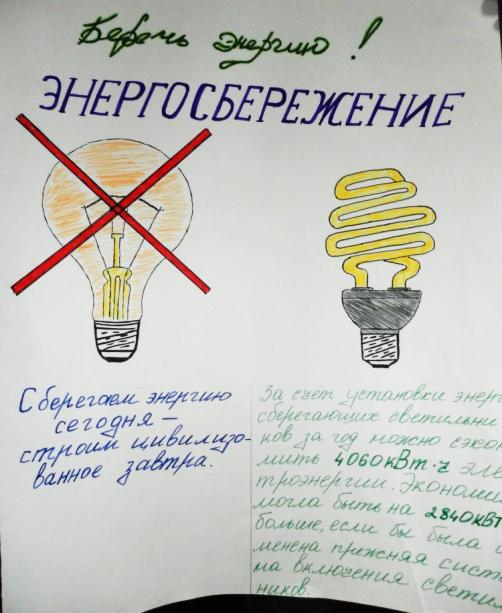 Беречь энергию!
ЭНЕРГОСБЕРЕЖЕНИЕ
Сберегаем энергию
сегодня –
строим цивилизо-
ванное завтра.
За счёт установки энер
сберегающих светильни
ков за год можно сэко
мить 4060кВт·ч эле
троэнергии. Экономи
могла быть на 2840кВт
больше, если бы была
менена прежняя сист
ма включения свети
ников.